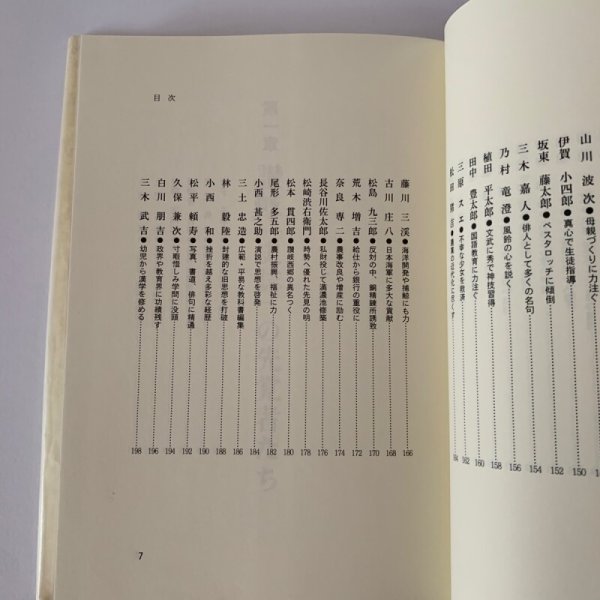 山川 波次●母親づくりに力注ぐ
伊賀 小四郎●真心で生徒指導 150
坂東 藤太郎●ペスタロッチに傾倒 152
三木 嘉人●俳人として多くの名句 154
乃村 竜澄●風鈴の心を説く 156
植田 平太郎●文武に秀で神技習得 158
田中 豊太郎●国語教育に力注ぐ 160
三原 スエ●不幸な少女を救済 162
164
目次
藤川 三渓●海洋開発や捕鯨にも力 166
古川 庄八●日本海軍に多大な貢献 168
松島 九三郎●反対の中、銅精錬所誘致 170
荒木 増吉●給仕から銀行の重役に 172
奈良 専二●農事改良や増産に励む 174
長谷川佐太郎●私財投じて満濃池修築 176
松崎渋右衛門●時勢へ優れた先見の明 178
松本 貫四郎●讃岐西郷の異名つく 180
尾形 多五郎●農村振興、福祉に力 182
小西 甚之助●演説で思想を啓発 184
三土 忠造●広範・平易な教科書編集 186
林 毅陸●封建的な旧思想を打破 188
小西 和●挫折を越え多彩な経歴 190
松平 頼寿●写真、書道、俳句に精通 192
久保 兼次●寸暇惜しみ学問に没頭 194
白川 朋吉●政界や教育界に功績残す 196
三木 武吉●幼児から漢学を修める 198
7